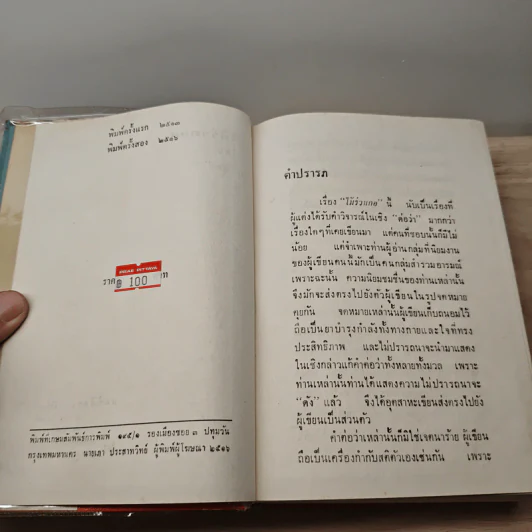 พิมพ์ครั้งแรก ๒๕๑๓
พิมพ์ครั้งสอง ๒๕๑๖
ราคา
฿ 100
บาท
พิมพ์ที่เกษมสัมพันธ์การพิมพ์ ๑๙๕/๑ รองเมืองซอย ๓ ปทุมวัน
กรุงเทพมหานคร นายเสา ประสาทวิทย์ ผู้พิมพ์ผู้โฆษณา ๒๕๑๖
คำปรารภ
เรื่อง "ไม้ร่วงกอ" นี้ นับเป็นเรื่องที่
ผู้แต่งได้รับคำวิจารณ์ในเชิง "ต่อว่า" มากกว่า
เรื่องใดๆที่เคยเขียนมา แต่คนที่ชอบนั้นก็มีไม่
น้อย แต่จำเพาะท่านผู้อ่านกลุ่มที่นิยมงาน
ของผู้เขียนคนนี้มักเป็นคนกลุ่มสำรวมอารมณ์
เพราะฉะนั้น ความนิยมชมชื่นของท่านเหล่านั้น
จึงมักจะส่งตรงไปยังตัวผู้เขียนในรูปจดหมาย
คุยกัน จดหมายเหล่านั้นผู้เขียนเก็บถนอมไว้
ถือเป็นยาบำรุงกำลังทั้งทางกายและใจที่ทรง
ประสิทธิภาพ และไม่ปรารถนาจะนำมาแสดง
ในเชิงกล่าวแก้คำต่อว่าทั้งหลายทั้งมวล เพราะ
ท่านเหล่านั้นท่านได้แสดงความไม่ปรารถนาจะ
"ดัง" แล้ว จึงได้อุตสาหะเขียนส่งตรงไปยัง
ผู้เขียนเป็นส่วนตัว
คำต่อว่าเหล่านั้นก็มิใช่เจตนาร้าย ผู้เขียน
ถือเป็นเครื่องกำกับสติตัวเองเช่นกัน เพราะ